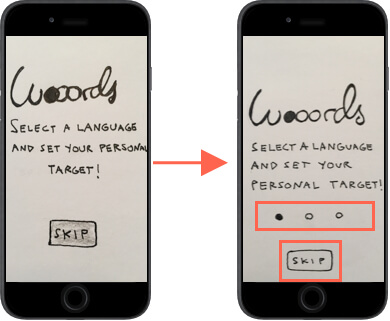 Wooords
SELECT A LANGUAGE
AND SET YOUR PERSONAL
TARGET!
SKIP
Wooords
SELECT A LANGUAGE
AND SET YOUR
PERSONAL TARGET!
SKIP